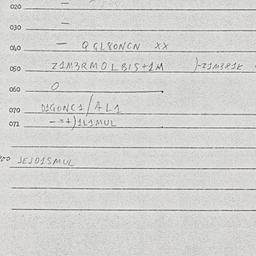 020 —
030 —
040 — Q GL8ONCN XX
050 Z1M3RMOLBIS+1M )-Z1M381E
060 O
070 D1GONC1/AL1
071 -=+)1L1MUL
JEJO15MUL